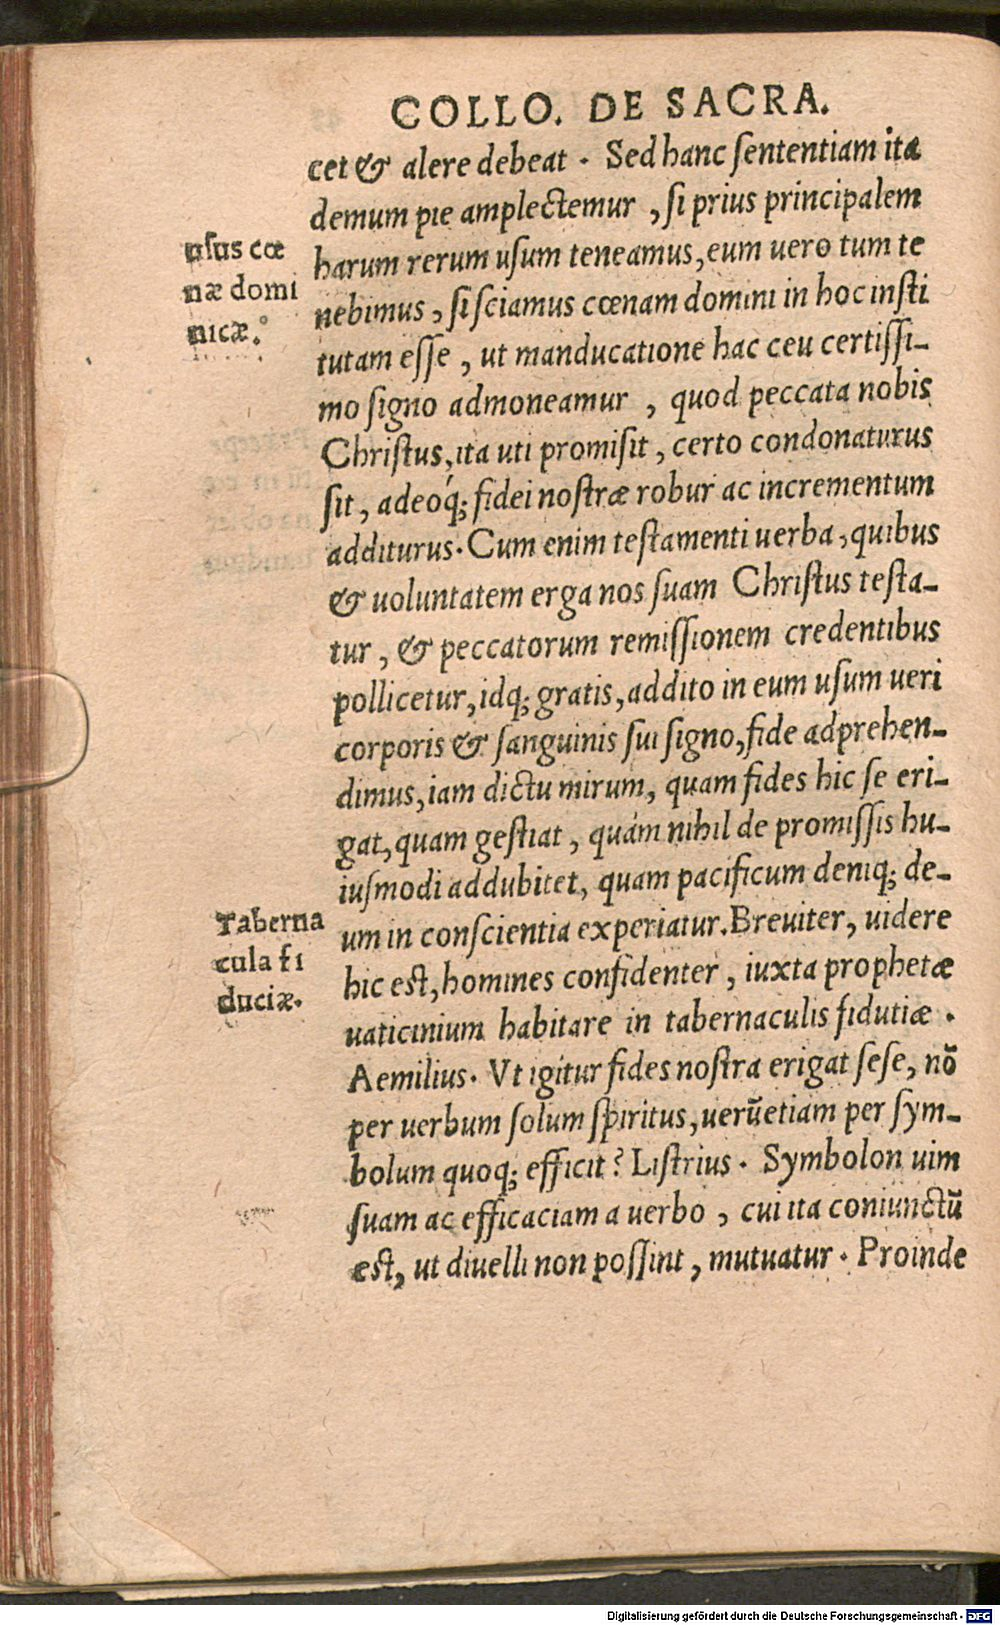 COLLO. DE SACRA.
cet & alere debeat. Sed hanc ſententiam ita
demum pie amplectemur, ſi prius principalem
harum rerum uſum teneamus, eum uero tum te
nebimus, ſi ſciamus cœnam domini in hoc inſti
tutam eſſe, ut manducatione hac ceu certiſſi-
mo ſigno admoneamur, quod peccata nobis
Chriſtus, ita uti promiſit, certo condonaturus
ſit, adeoq́; fidei noſtræ robur ac incrementum
additurus. Cum enim teſtamenti uerba, quibus
& uoluntatem erga nos ſuam Chriſtus teſta-
tur, & peccatorum remiſſionem credentibus
pollicetur, idq; gratis, addito in eum uſum ueri
corporis & ſanguinis ſui ſigno, fide adprehen-
dimus, iam dictu mirum, quam fides hic ſe eri-
gat, quam geſtiat, quàm nihil de promiſſis hu-
iuſmodi addubitet, quam pacificum deniq; de-
um in conſcientia experiatur. Breuiter, uidere
hic eſt, homines confidenter, iuxta prophetæ
uaticinium habitare in tabernaculis fidutiæ.
Aemilius. Vt igitur fides noſtra erigat ſeſe, nō
per uerbum ſolum ſpiritus, uerūetiam per ſym-
bolum quoq; efficit? Liſtrius. Symbolon uim
ſuam ac efficaciam a uerbo, cui ita coniunctū
eſt, ut diuelli non poſſint, mutuatur. Proinde
uſus cœ
næ domi
nicæ.
Taberna
cula fi
duciæ.
Digitalisierung gefördert durch die Deutsche Forschungsgemeinschaft - DFG